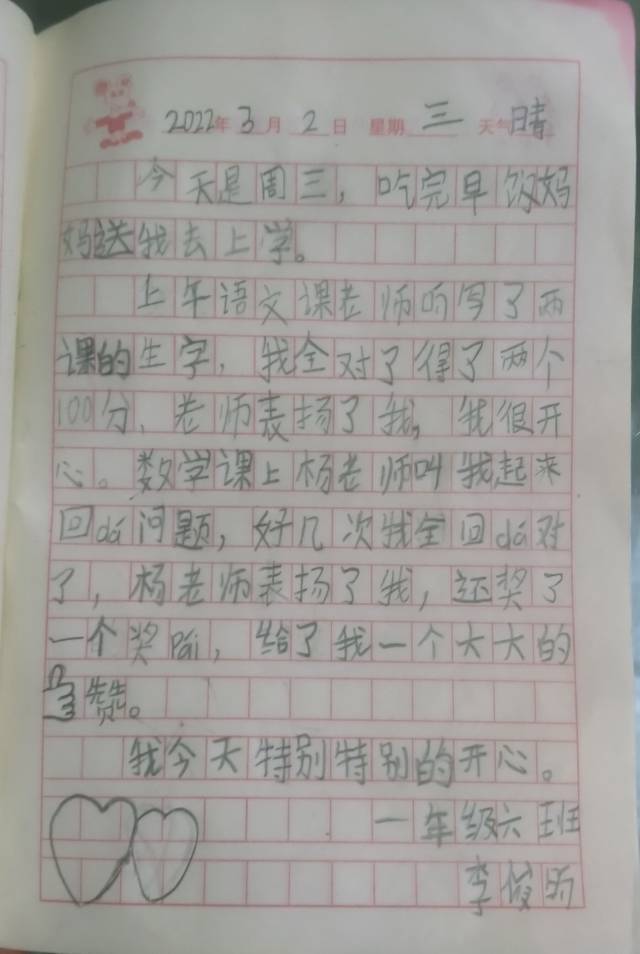 2022年 3月 2日 星期 三 天气 晴
今天是周三，吃完早饭妈
妈送我去上学。
上午语文课老师听写了两
课的生字，我全对了得了两个
100分，老师表扬了我，我很开
心。数学课上杨老师叫我起来
回dá问题，好几次我全回dá对
了，杨老师表扬了我，还奖了
一个奖Pái，给了我一个大大的
赞。
我今天特别特别的开心。
一年级六班
李俊昕